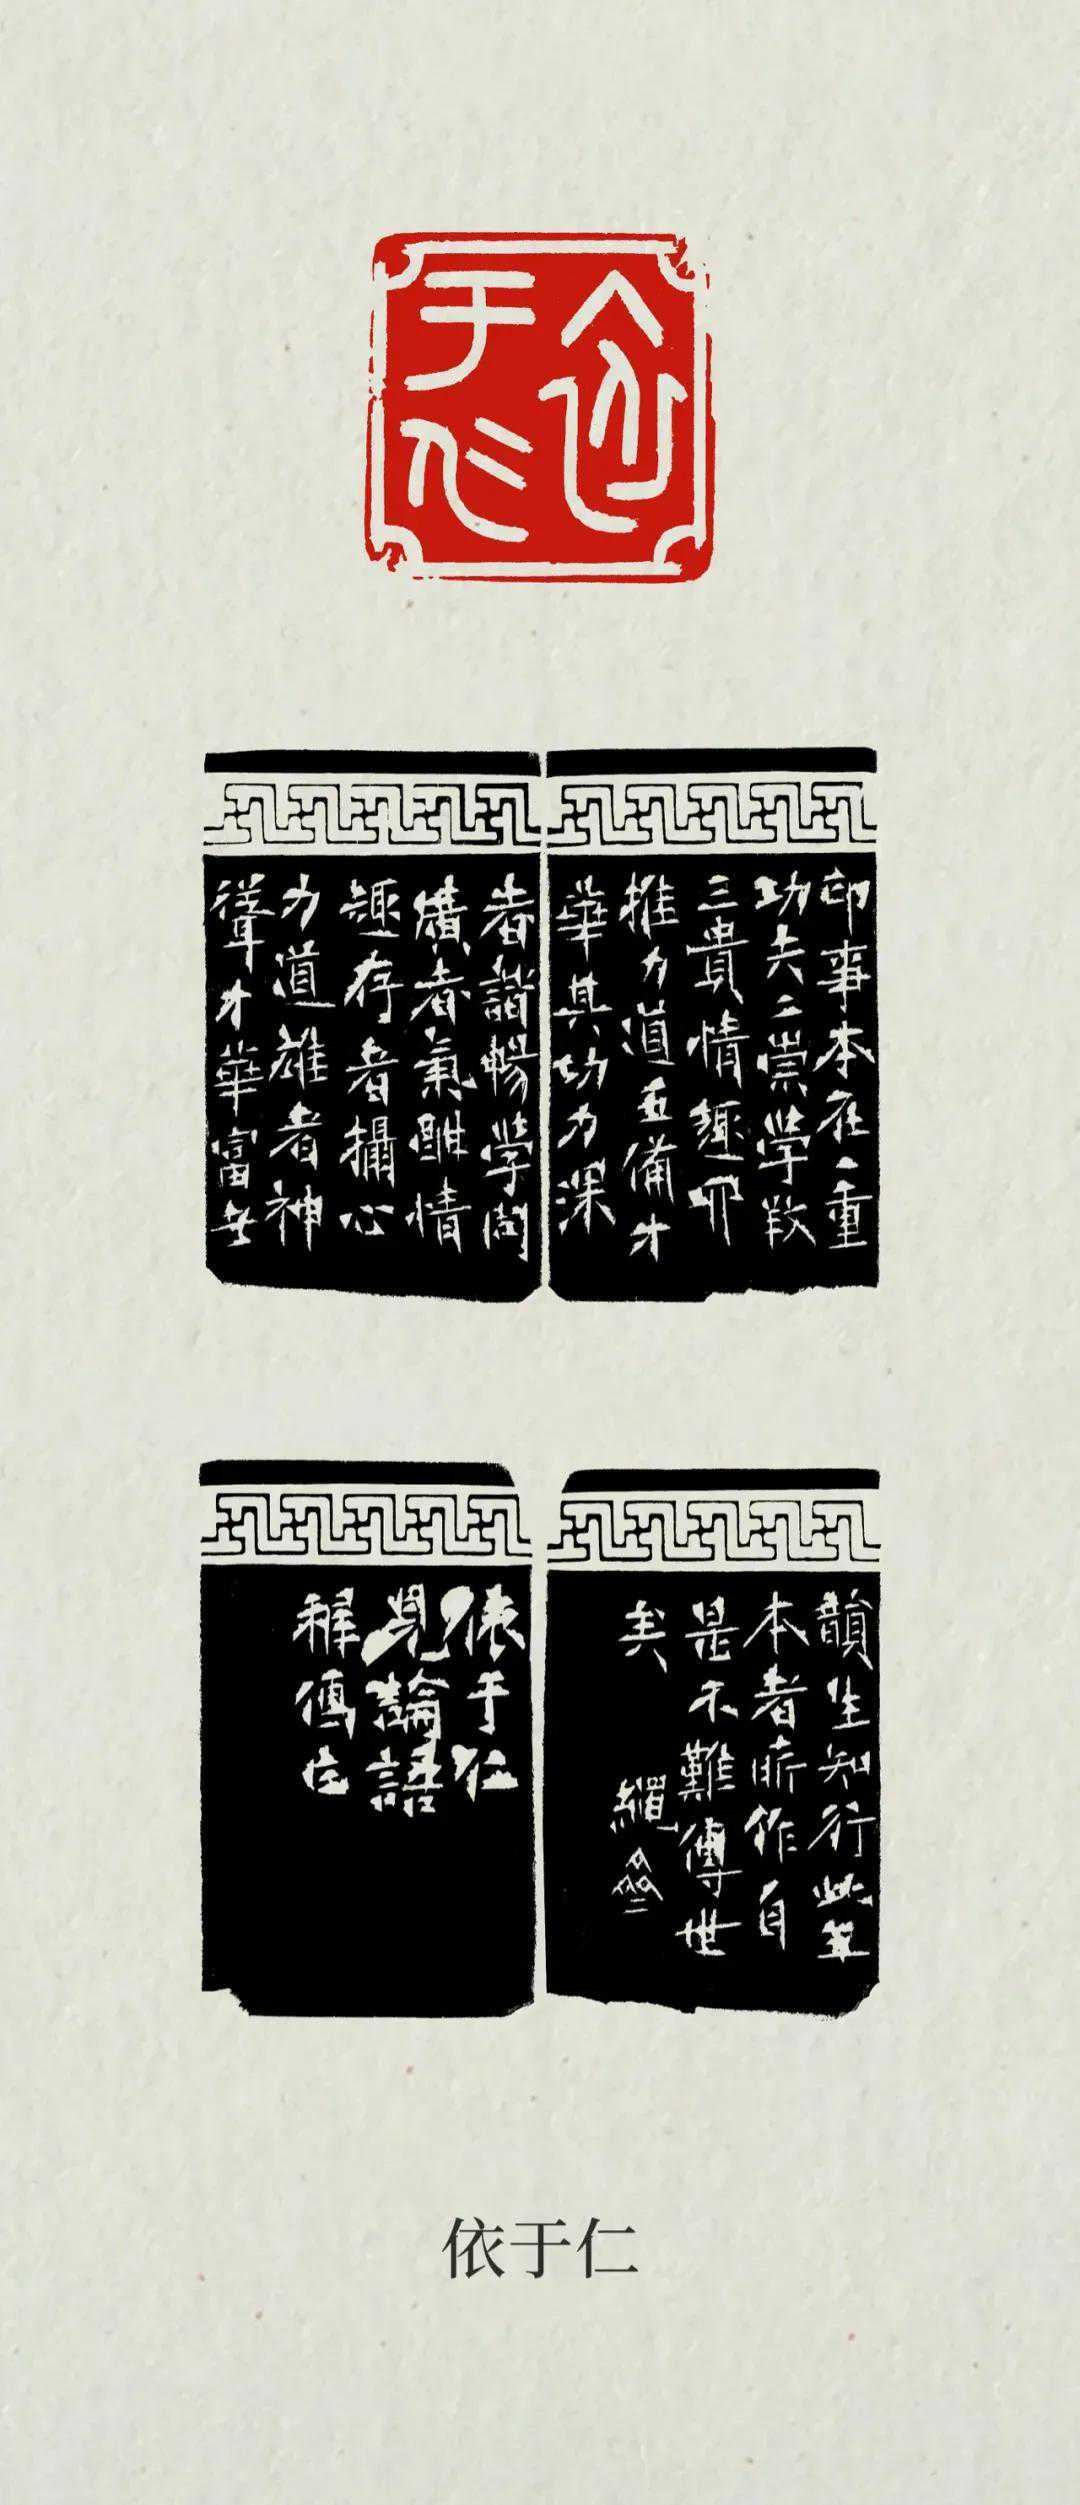 依
于仁
印事本在一重
功夫二崇學
三貴情趣四
推力道五備才
華其功力深
者諧暢學問
廣者氣 情
趣存者攝心
力道雄者神
聳才華富者
韻生知行此
本者所作自
是不難傳世
矣
依于仁
見論語
依于仁